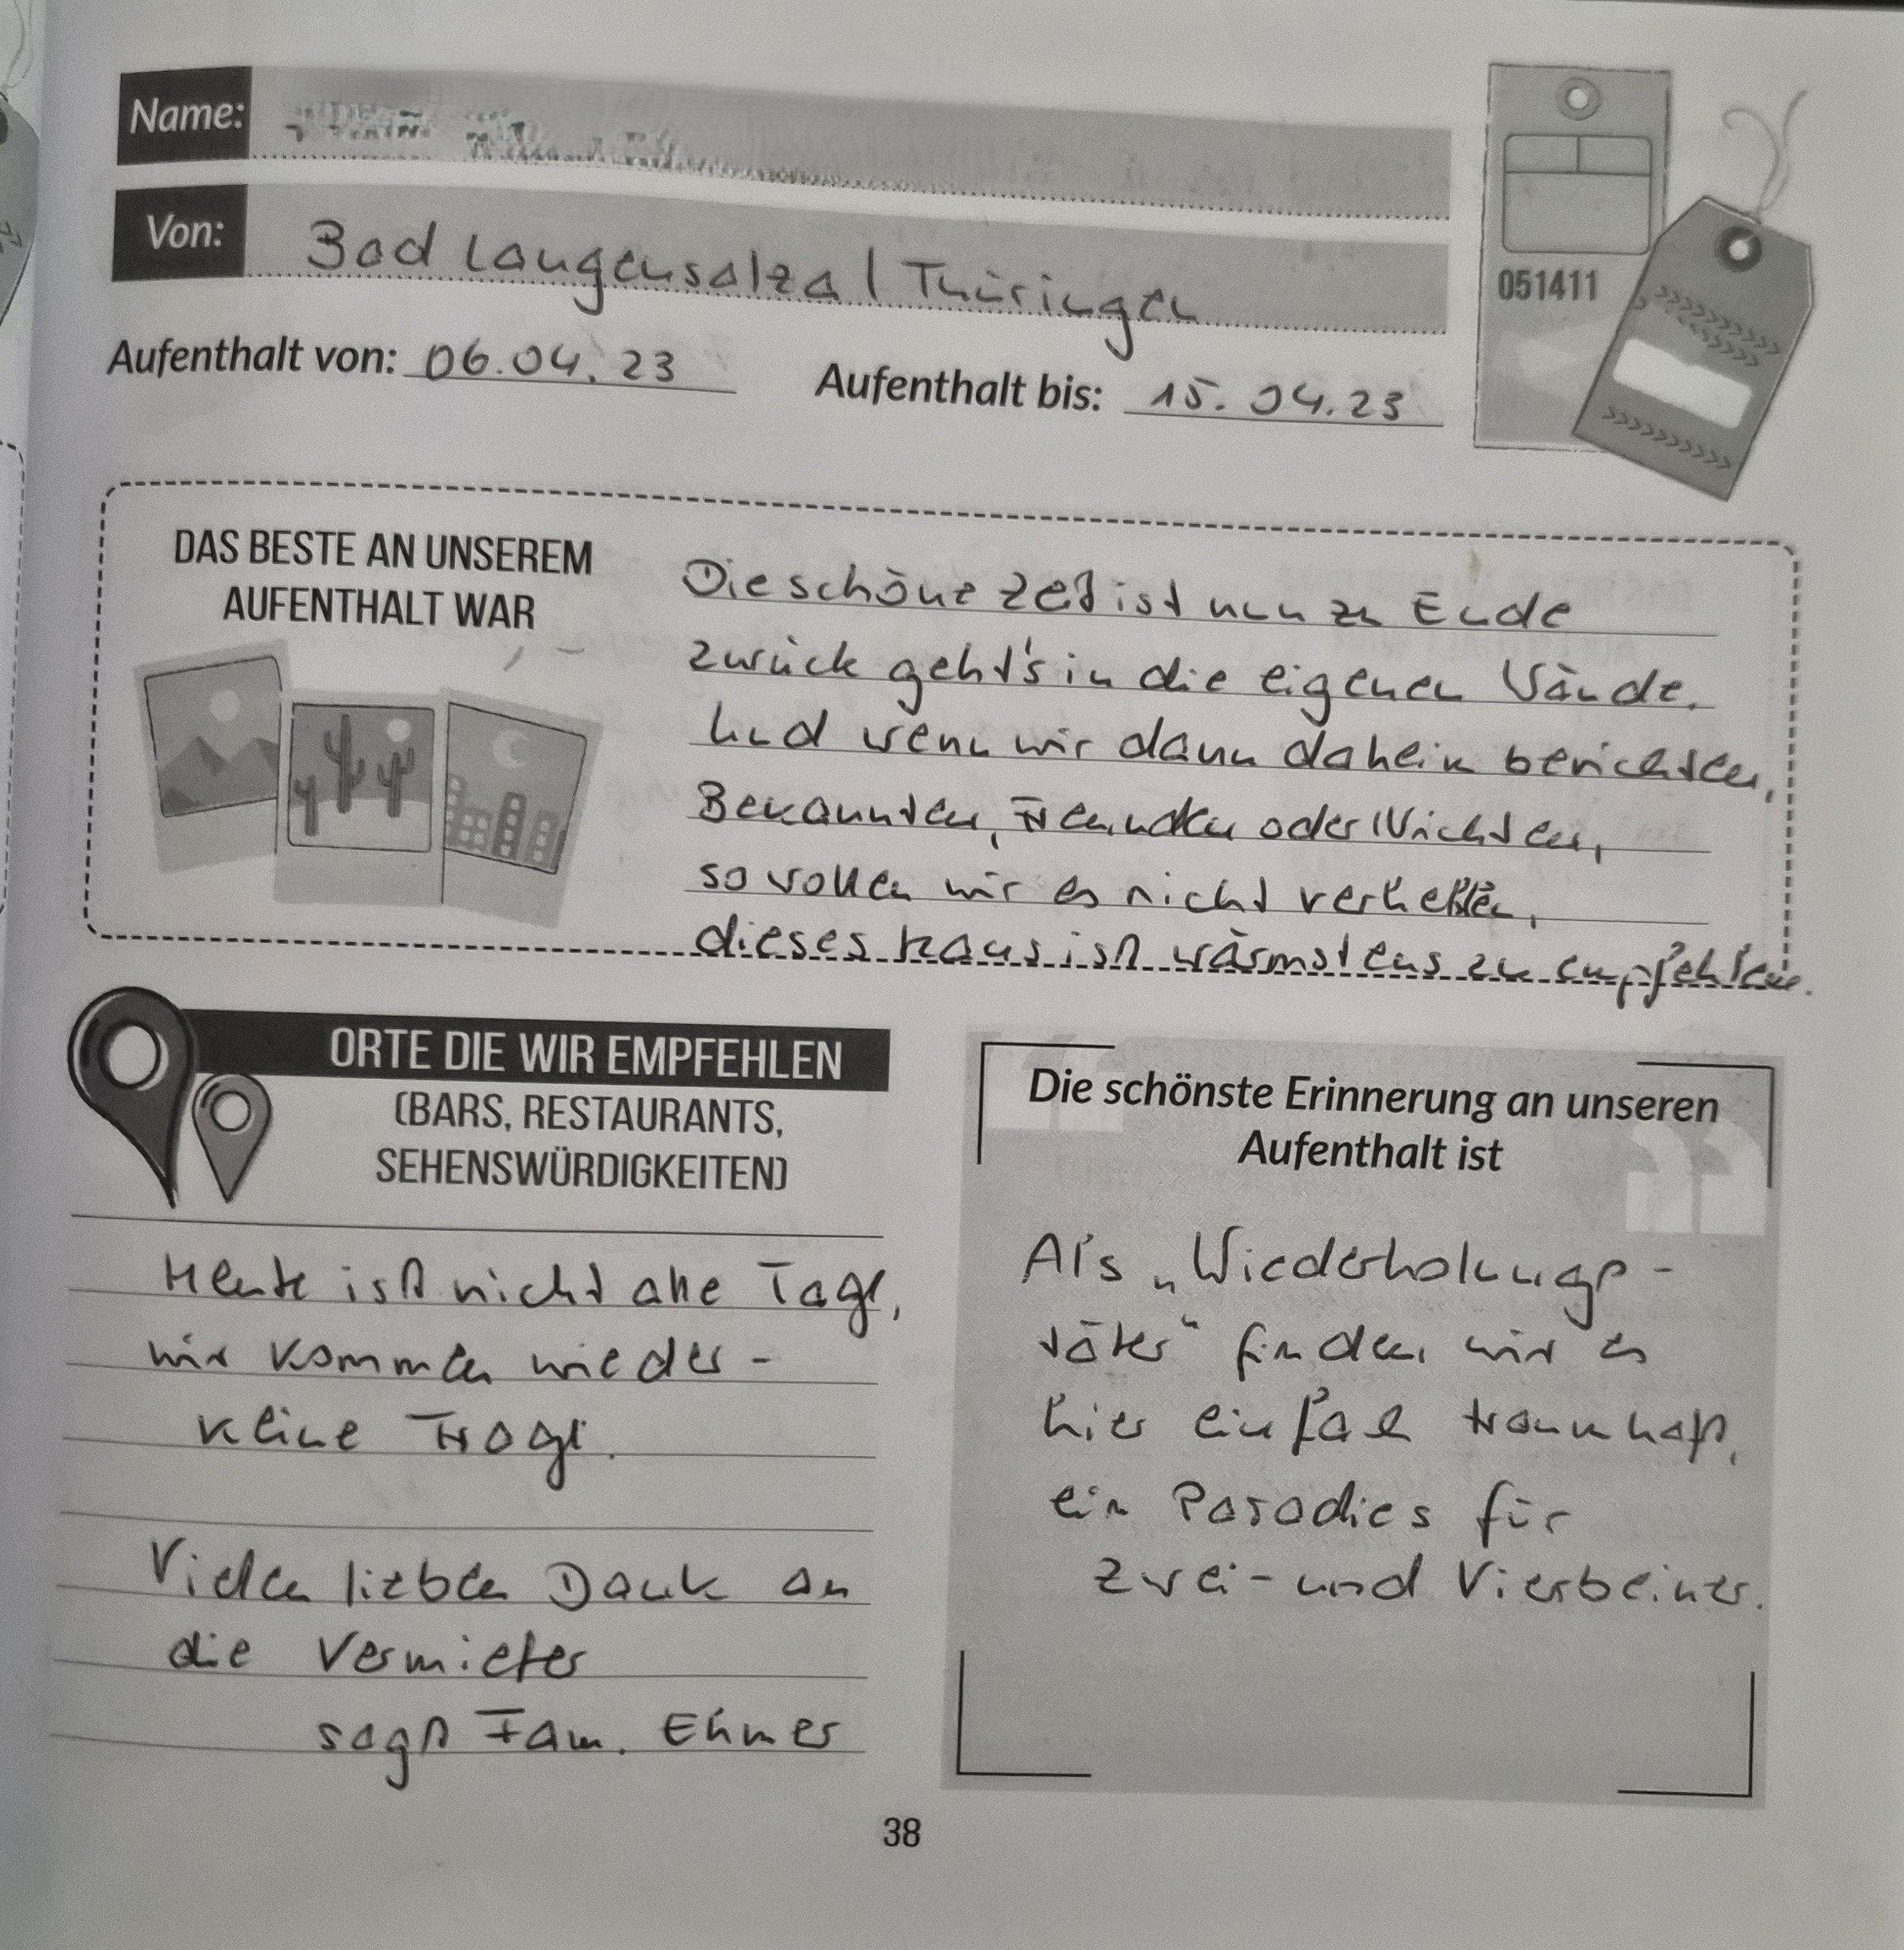 Name:
Von: Bad Langensalza / Thüringen
Aufenthalt von: 06.04.23
Aufenthalt bis: 15.04.23
051411
DAS BESTE AN UNSEREM
AUFENTHALT WAR
Die schöne Zeit ist nun zu Ende
zurück geht's in die eigenen Wände.
Und wenn wir dann daheim berichten,
Bekannten, Freunden oder Nichten,
so wollen wir es nicht verhehlen,
dieses Haus ist wärmstens zu empfehlen.
ORTE DIE WIR EMPFEHLEN
(BARS, RESTAURANTS,
SEHENSWÜRDIGKEITEN)
Heute ist nicht alle Tage,
wir kommen wieder -
keine Frage.
Vielen lieben Dank an
die Vermieter
sagt Fam. Ehmer
Die schönste Erinnerung an unseren
Aufenthalt ist
Als „Wiederholungs-
täter“ finden wir es
hier einfach traumhaft,
ein Paradies für
Zwei- und Vierbeiner.
38